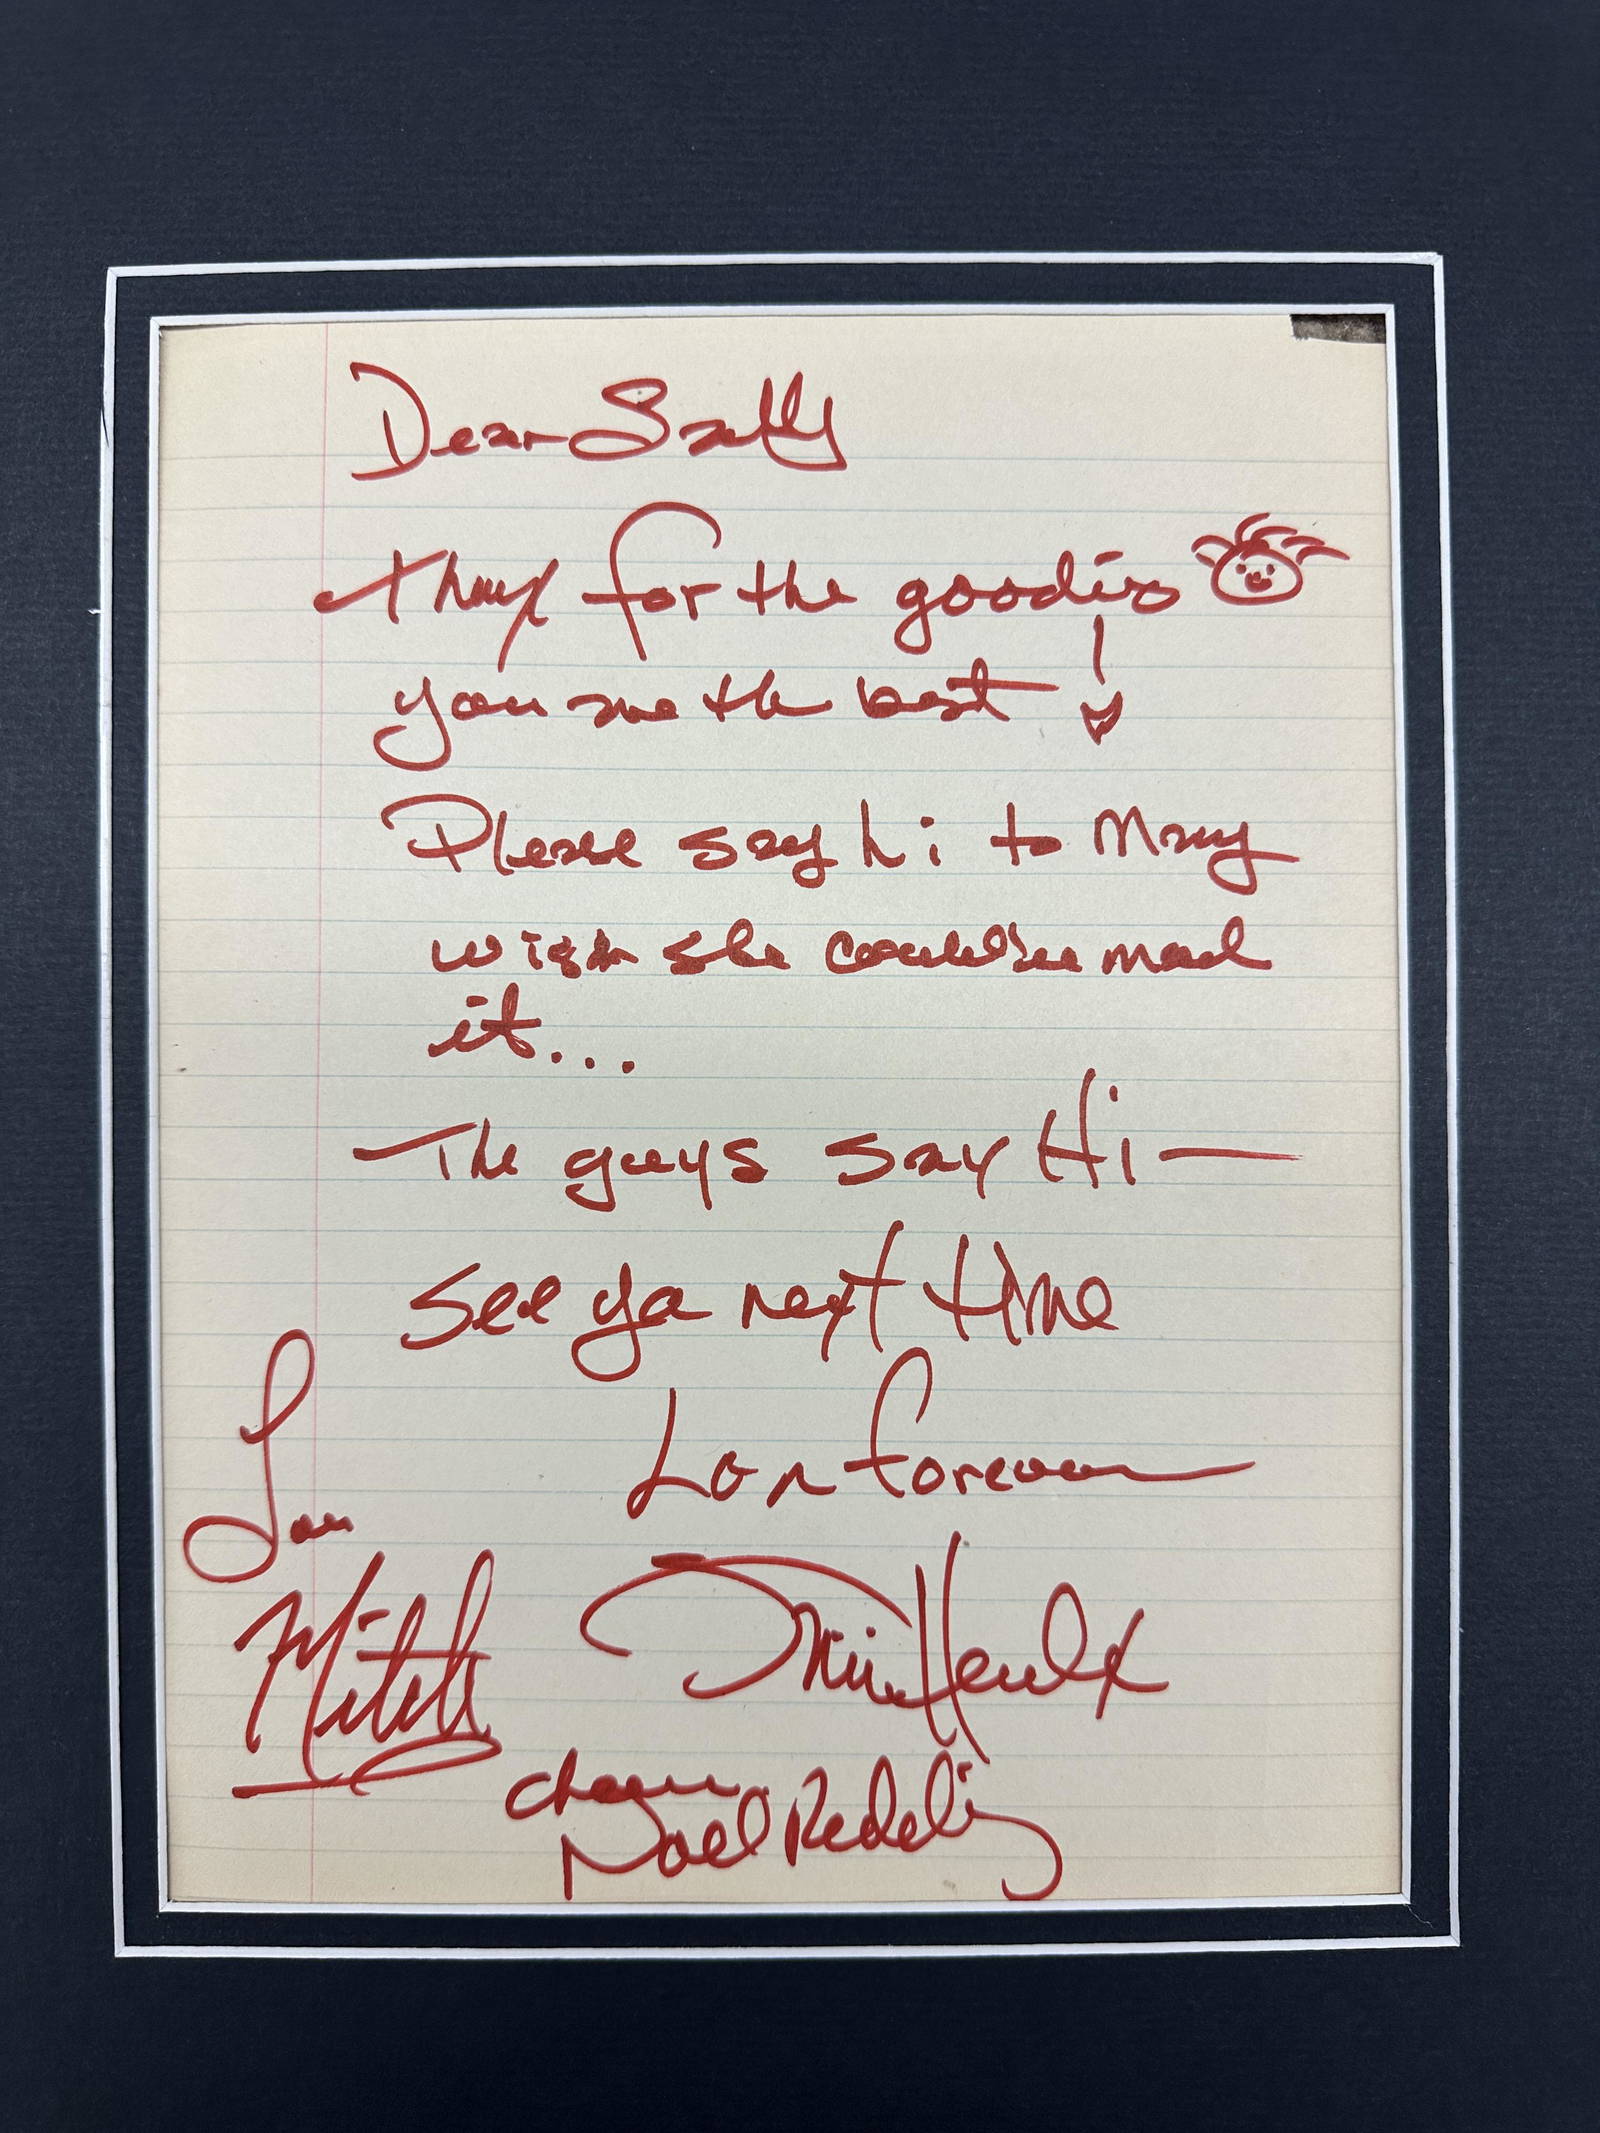 Dear Sally
thanx for the goodies
you are the best !
Please say hi to Mary
wish she could've made
it...
The guys say Hi —
see ya next time
Love forever
Love
Mitch
Jimi Hendrix
cheers
Noel Redding